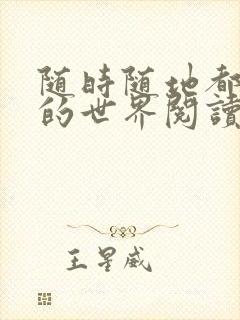 随時随地都
的世界閱讀
王星威